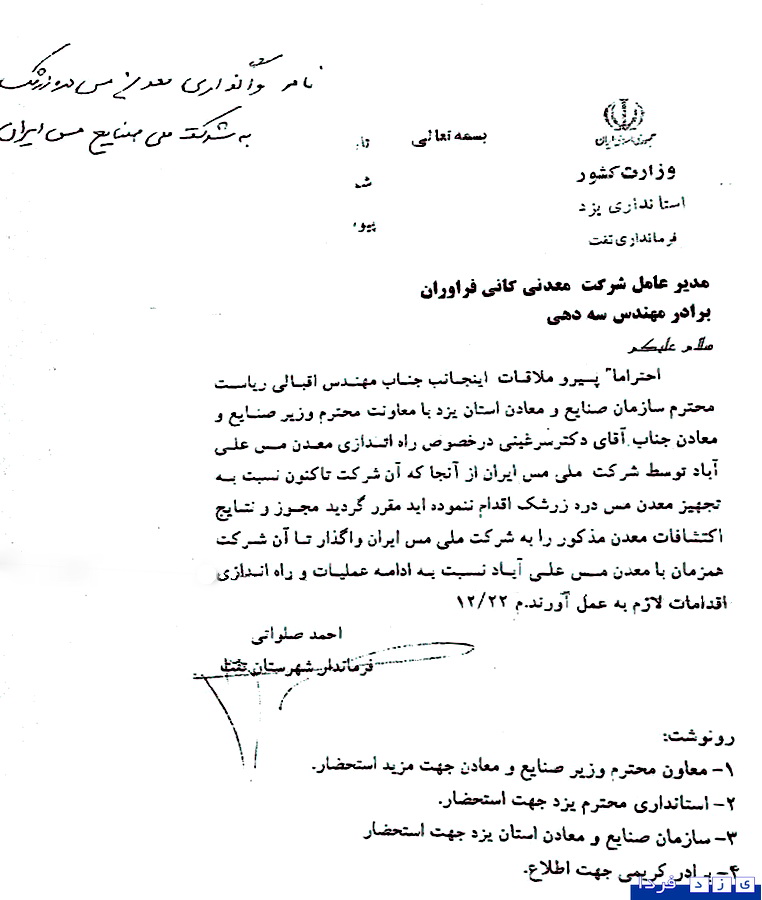 نامه واگذاری معدن مس دره زرشک
به شرکت ملی صنایع مس ایران
جمهوری اسلامی ایران
بسمه تعالی
وزارت کشور
استانداری یزد
فرمانداری تفت
تا
شـ
پیو
مدیر عامل شرکت معدنی کانی فراوران
برادر مهندس سه دهی
سلام علیکم
احتراماً پیرو ملاقات اینجانب جناب مهندس اقبالی ریاست
محترم سازمان صنایع و معادن استان یزد با معاونت محترم وزیر صنایع و
معادن جناب آقای دکترسرغینی درخصوص راه اندازی معدن مس علی
آباد توسط شرکت ملی مس ایران از آنجا که آن شرکت تاکنون نسبت به
تجهیز معدن مس دره زرشک اقدام ننموده اید مقرر گردید مجوز و نتایج
اکتشافات معدن مذکور را به شرکت ملی مس ایران واگذار تا آن شرکت
همزمان با معدن مس علی آباد نسبت به ادامه عملیات و راه اندازی
اقدامات لازم به عمل آورند.م ۱۲/۲۲
احمد صلواتی
فرماندار شهرستان تفت
رونوشت:
۱- معاون محترم وزیر صنایع و معادن جهت مزید استحضار.
۲- استانداری محترم یزد جهت استحضار.
۳- سازمان صنایع و معادن استان یزد جهت استحضار
۴- برادر کریمی جهت اطلاع.
یزد فردا